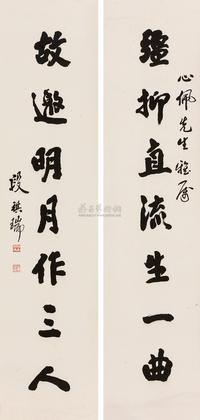 心佩先生雅属
彊抑直流生一曲
故邀明月作三人
段祺瑞